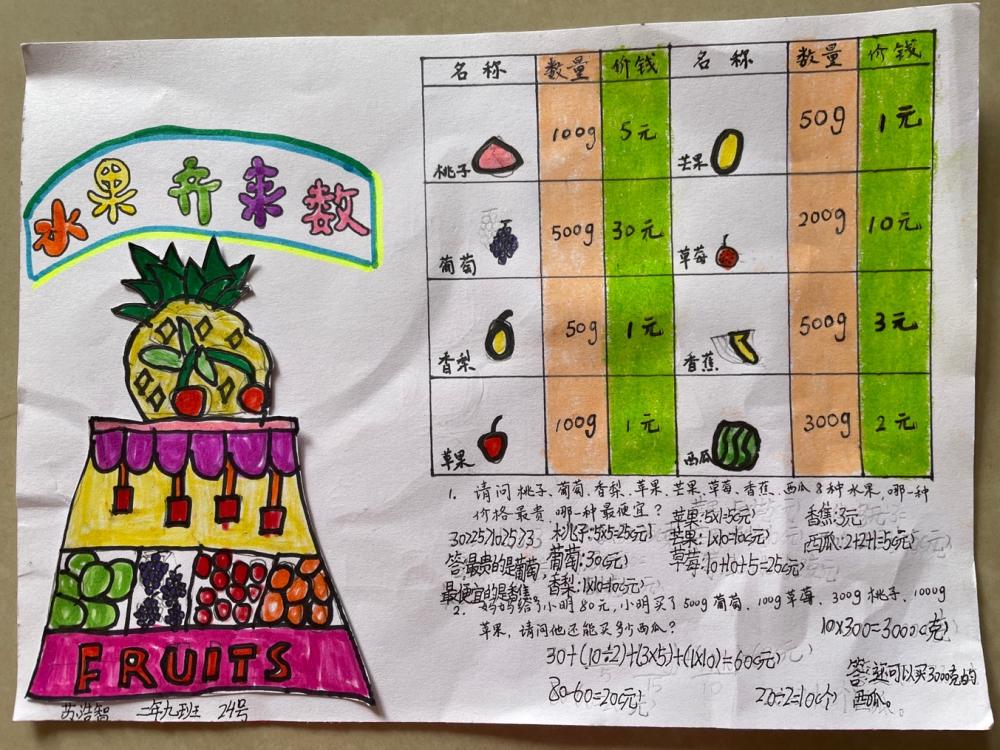 水果乔来数
FRUITS
苏浩智 二年九班 24号
名称 数量 价钱 名称 数量 价钱
桃子 100g 5元 芒果 50g 1元
葡萄 500g 30元 草莓 200g 10元
香梨 50g 1元 香蕉 500g 3元
苹果 100g 1元 西瓜 300g 2元
1. 请问桃子、葡萄、香梨、苹果、芒果、草莓、香蕉、西瓜8种水果,哪一种
价格最贵 哪一种最便宜?
苹果:5x1=5(元) 香蕉:3元
30>25>10>5>3 桃子:5x5=25(元) 芒果:1x10=10(元) 西瓜:2+2+1=5(元)
答:最贵的是葡萄, 葡萄:30(元) 草莓:10+10+5=25(元)
最便宜的是香蕉 香梨:1x10=10(元)
2. 妈妈给了小明80元,小明买了500g葡萄、100g草莓、300g桃子、1000g
苹果,请问他还能买多少西瓜?
10x300=3000(克)
30+(10÷2)+(3x5)+(1x10)=60(元)
80-60=20(元) 20÷2=10(个)
答:还可以买3000克的
西瓜。